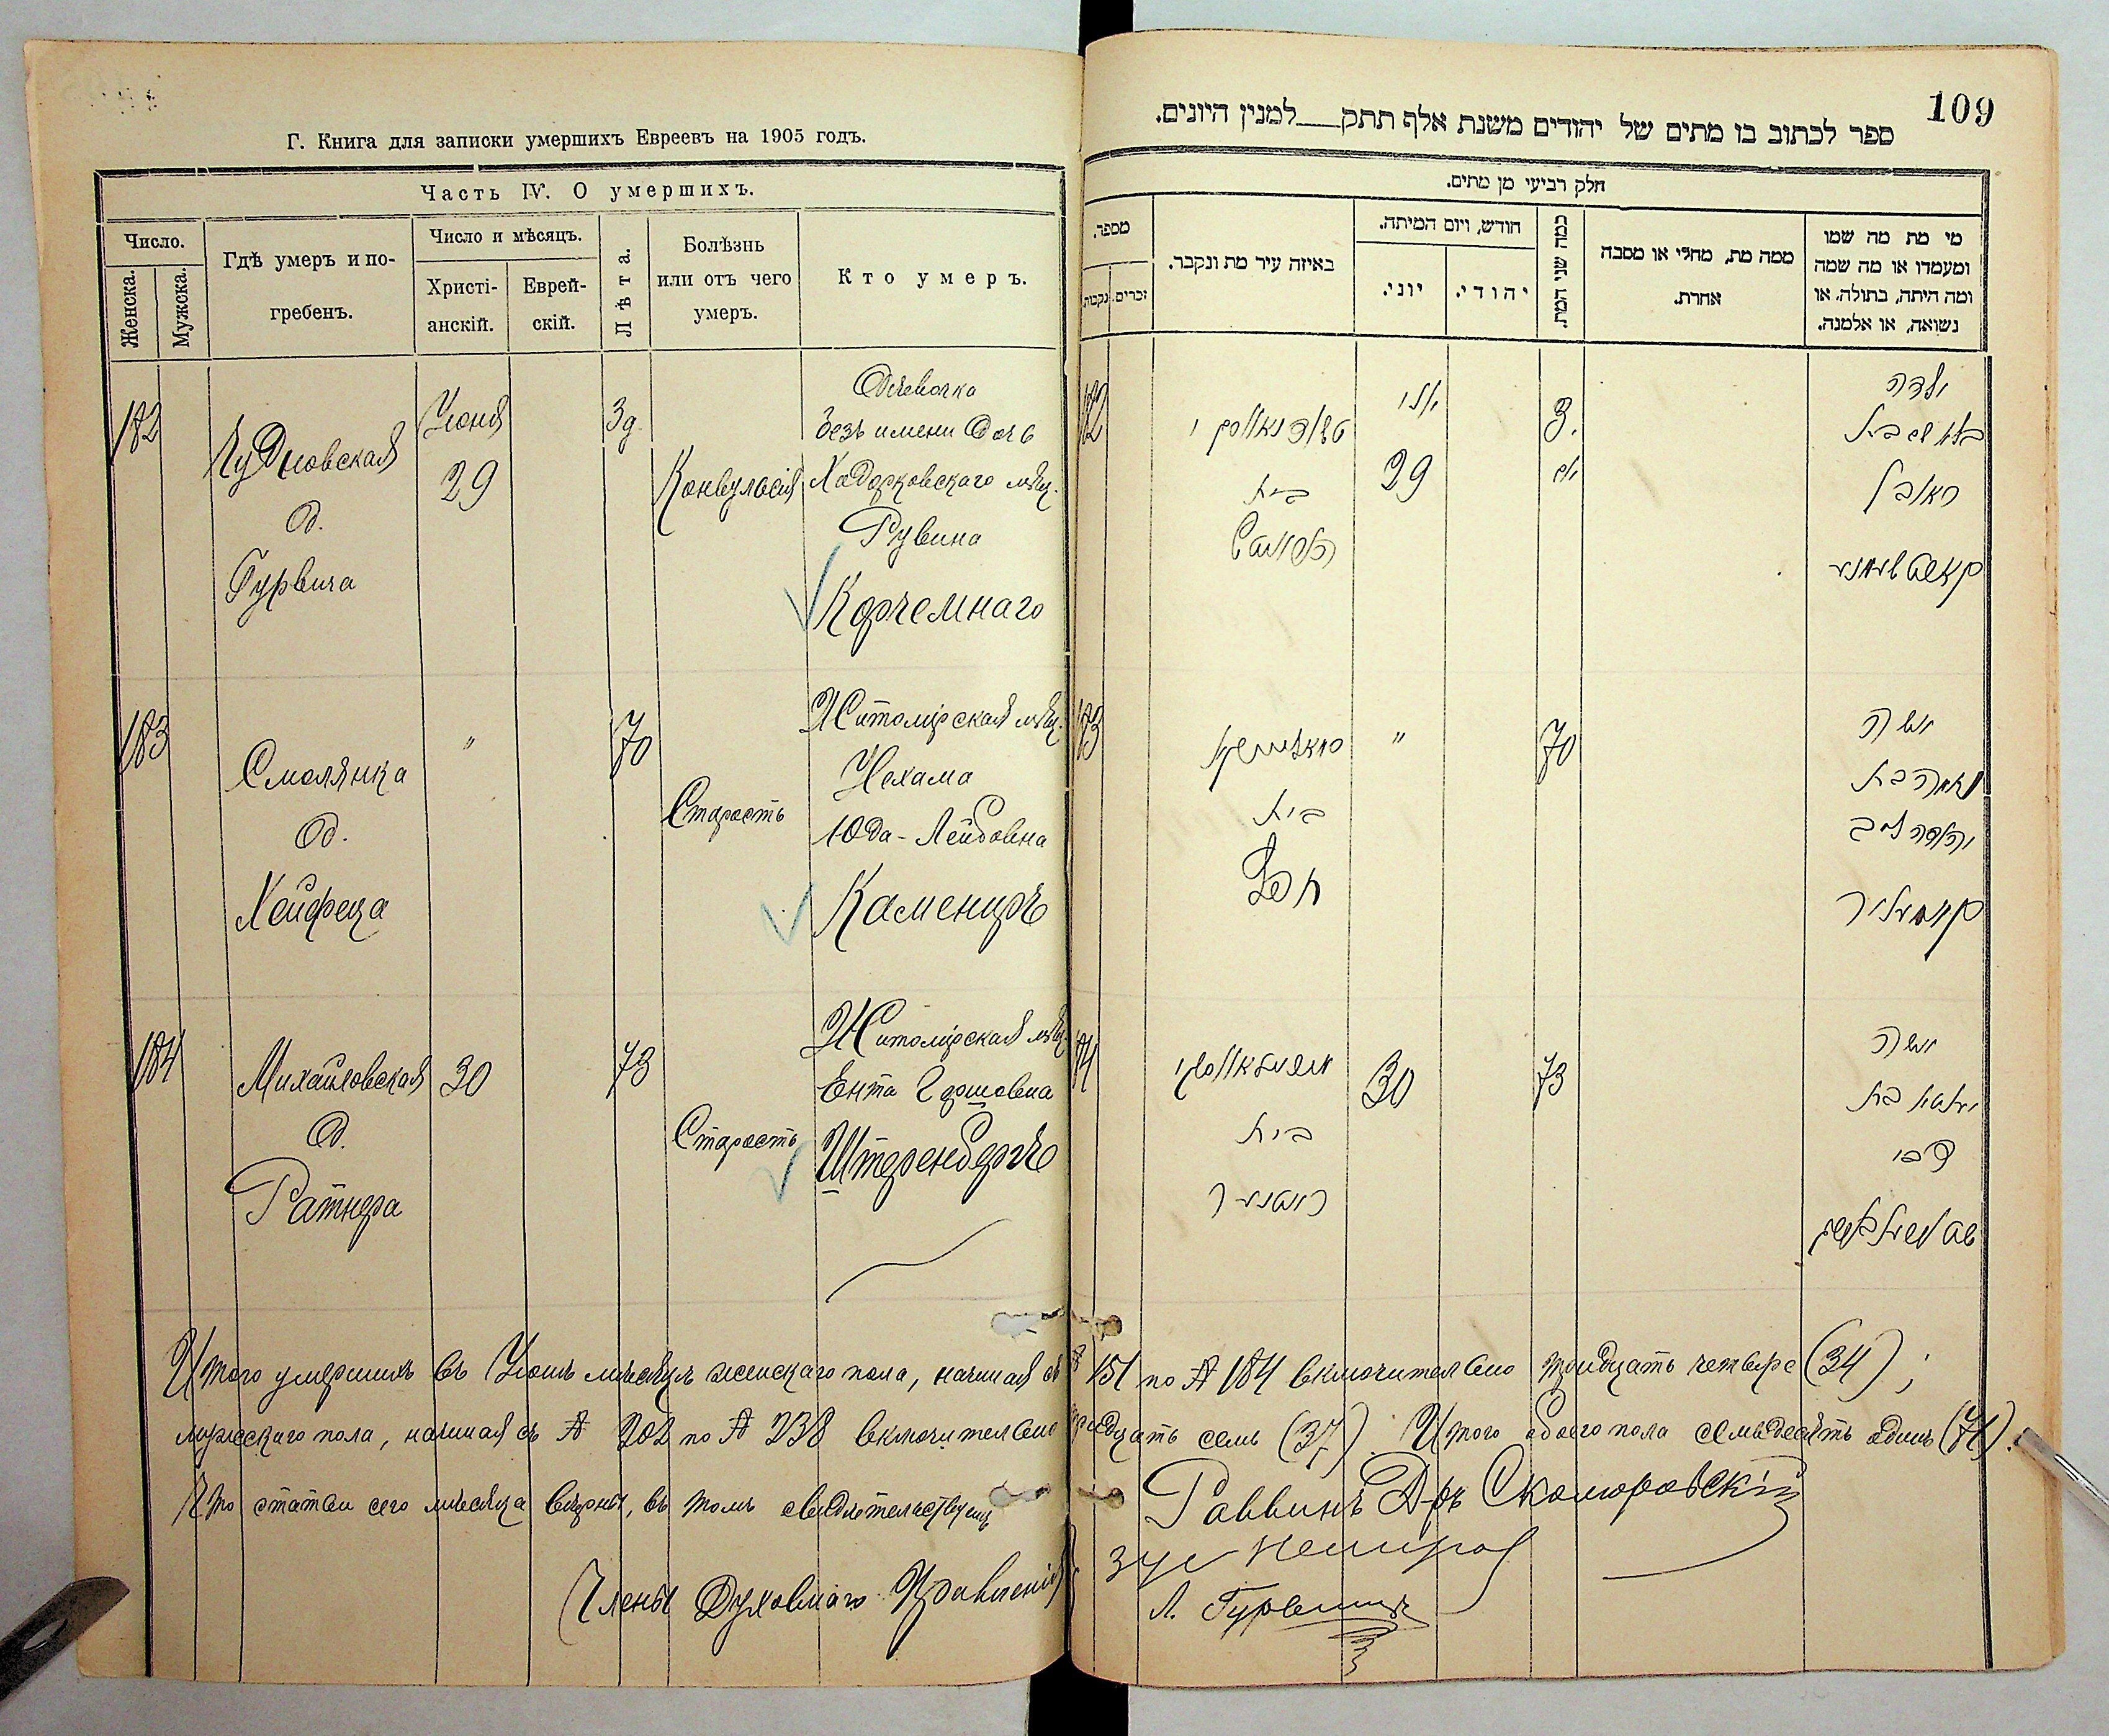 Г. Книга для записки умершихъ Евреевъ на 1905 годъ.
Часть IV. О умершихъ.
Число.
Женска.
Мужска.
Гдѣ умеръ и по-
гребенъ.
Число и мѣсяцъ.
Христі-
анскій.
Еврей-
скій.
Лѣта.
Болѣзнь
или отъ чего
умеръ.
Кто умеръ.
182
Чудновская
д.
Гурвича
Іюня
29
3 д.
Конвульсія
Дѣвочка
безъ имени дочь
Ходорковскаго мѣщ.
Рувина
Корчемнаго
183
Смолянка
д.
Хейфеца
"
70
Старость
Житомірская мѣщ.
Нехама
Юда-Лейбовна
Камениръ
184
Михайловская
д.
Ратнера
30
73
Старость
Житомірская мѣщ.
Ента Гершовна
Штеренбергъ
109
ספר לכתוב בו מתים של יהודים משנת אלף תתק למנין היונים.
חלק רביעי מן מתים.
מספר.
נקבות.
זכרים.
באיזה עיר מת ונקבר.
חודש, ויום המיתה.
יוני.
יהודי.
כמה שני המת.
ממה מת, מחלי או מסבה
אחרת.
מי מת מה שמו
ומעמדו או מה שמה
ומה היתה, בתולה, או
נשואה, או אלמנה.
182
בית
יוני
29
3.
ילדה
ראובן
183
בית
חפץ
"
70
אשה
נחמה בת
184
בית
ראטנער
30
73
אשה
יענטא בת
צבי
Итого умершихъ въ Іюнѣ мѣсяцѣ женскаго пола, начиная съ № 151 по № 184 включительно тридцать четыре (34);
мужескаго пола, начиная съ № 202 по № 238 включительно тридцать семь (37). Итого обоего пола семьдесятъ одинъ (71).
Что статьи сего мѣсяца вѣрны, въ томъ свидѣтельствуемъ
Раввинъ Д-ръ Скоморовскій
Члены Духовнаго Правленія
Л. Гурвичъ